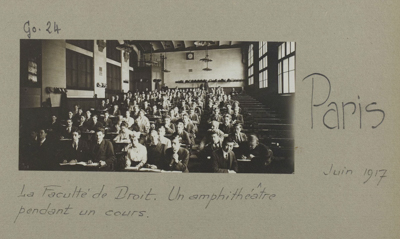 Go. 24
Paris
Juin 1917
La Faculté de Droit. Un amphithéâtre
pendant un cours.